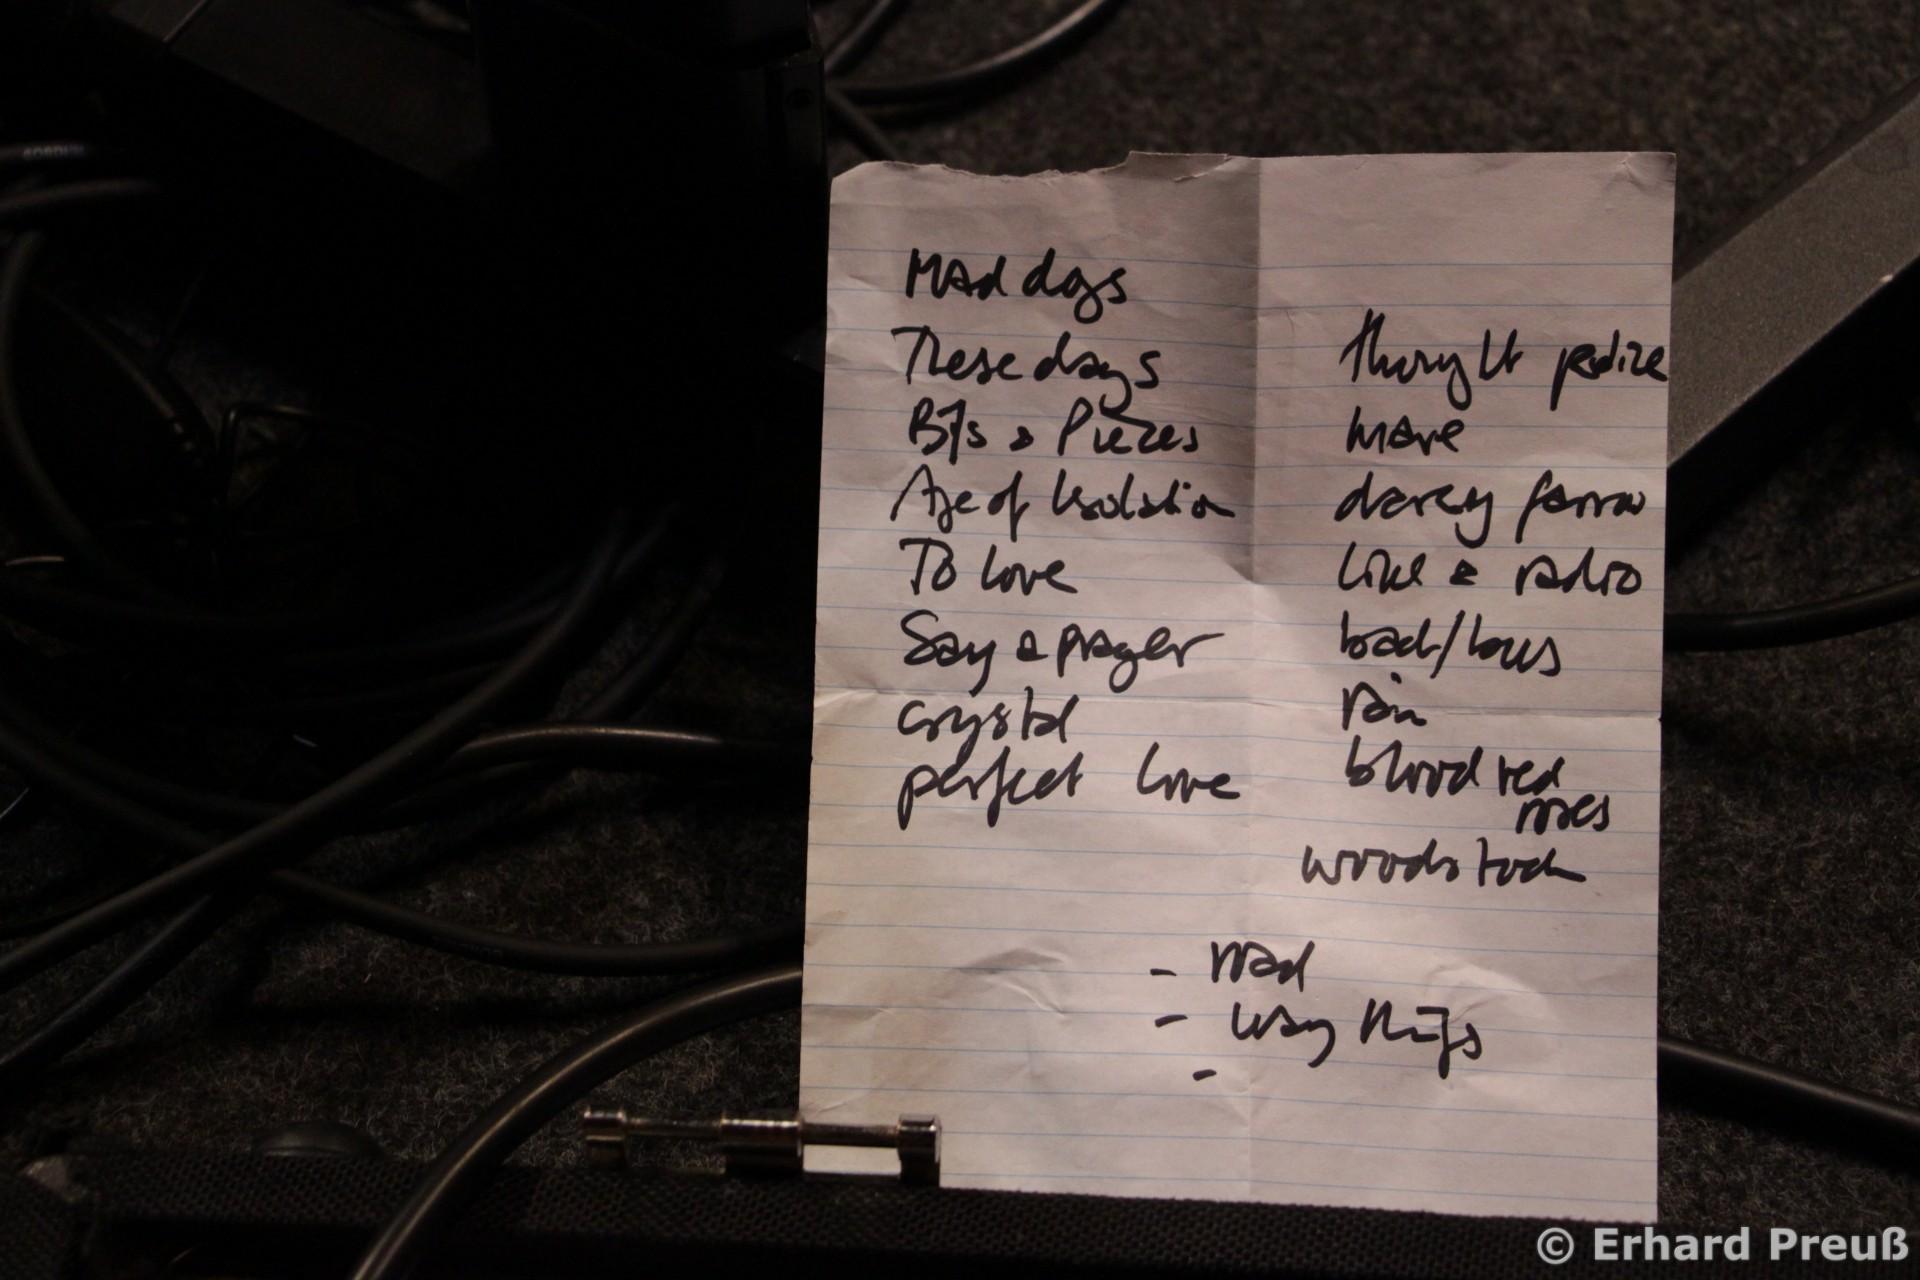 Mad dogs
These days
Bits & Pieces
Age of Isolation
To love
Say a prayer
crystal
perfect love
more
darcy farrow
like a radio
rain
blood red
roses
woodstock
- road
- way things
-
© Erhard Preuß